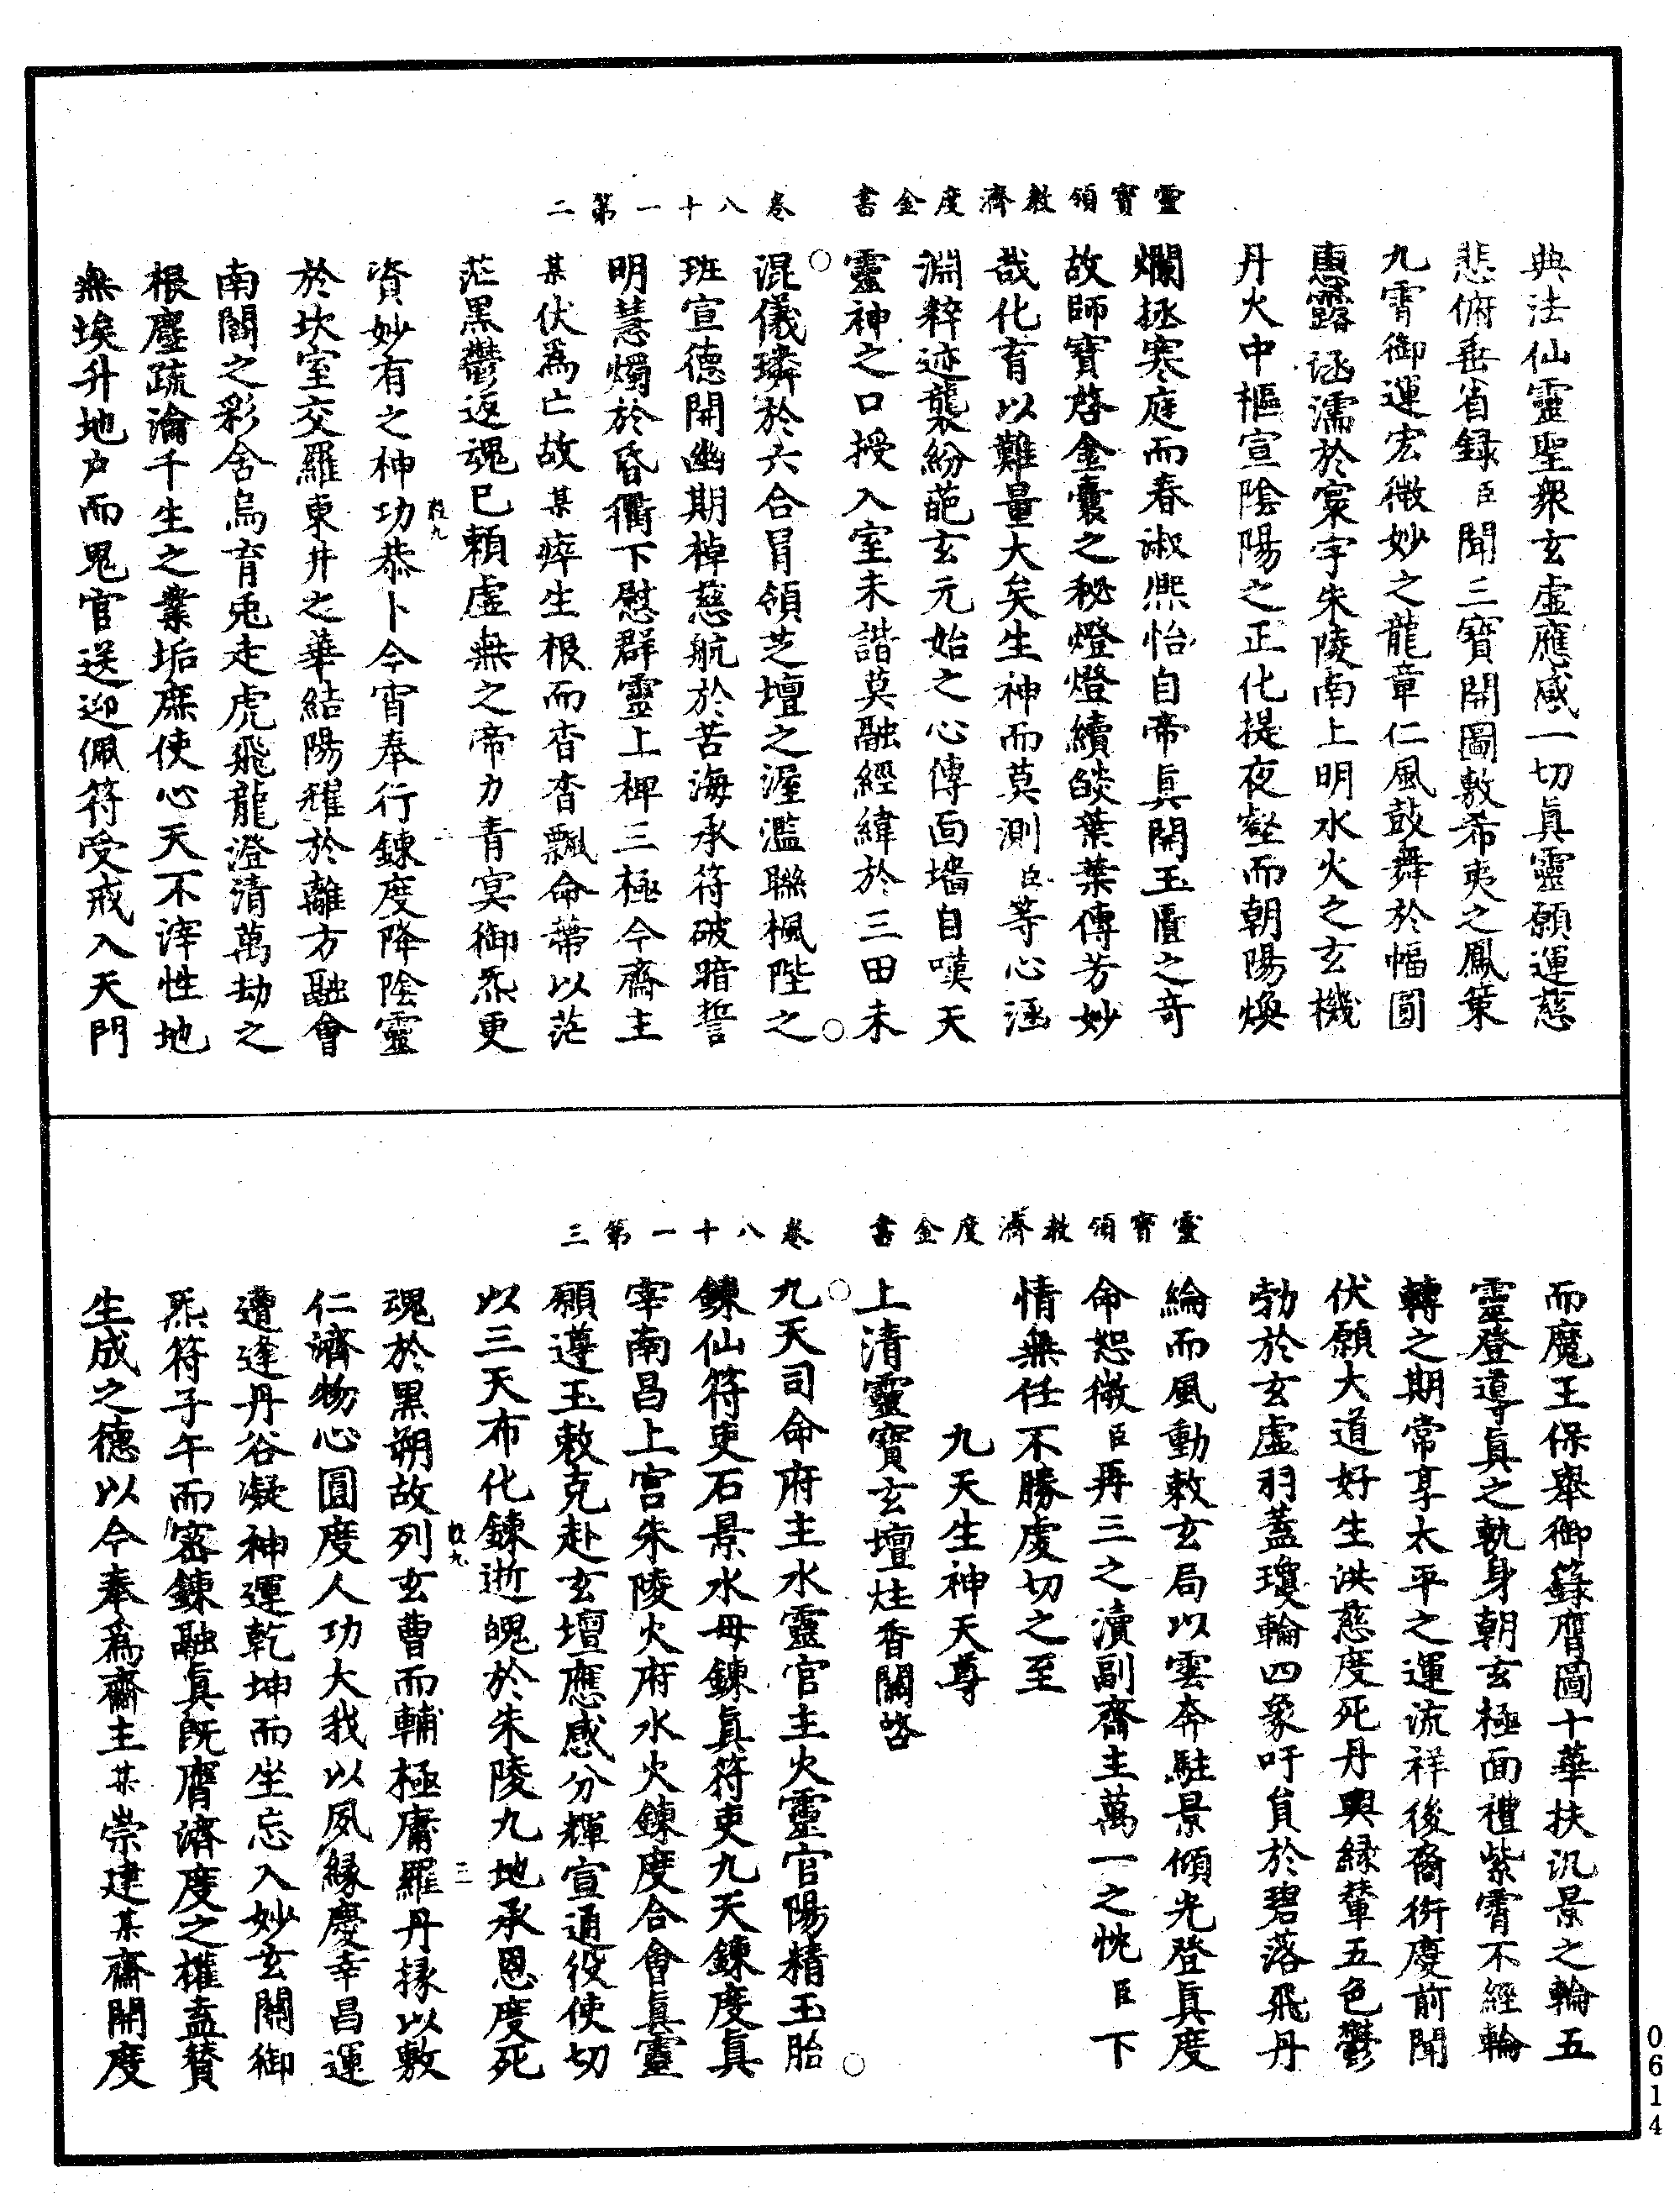 靈寶領教濟度金書　卷八十一第二
典法仙靈聖衆玄虛應感一切眞靈願運慈
悲俯垂省録臣聞三寶開圖敷希夷之鳳策
九霄御運宏微妙之龍章仁風鼓舞於幅圓
惠露涵濡於寰宇朱陵南上明水火之玄機
丹火中樞宣陰陽之正化提夜壑而朝陽煥
爛拯寒庭而春淑熈怡自帝眞開玉匱之竒
故師寶啓金囊之秘燈燈續燄葉葉傳芳妙
哉化育以難量大矣生神而莫測臣等心涵
淵粹迹襲紛葩玄元始之心傳面墻自嘆天
靈神之口授入室未諧莫融經緯於三田未
混儀璘於六合冐領芝壇之渥濫聮楓陛之
班宣德開幽期棹慈航於苦海承符破暗誓
明慧燭於昏衢下慰群靈上裨三極今齋主
某伏爲亡故某瘁生根而杳杳飄命蔕以茫
茫黑鬱返魂已賴虛無之帝力青冥御炁更
資妙有之神功恭卜今宵奉行鍊度降陰靈
殺九
於坎室交羅東井之華結陽耀於離方融會
南閣之彩舍烏育兎走虎飛龍澄清萬劫之
根塵疏瀹千生之業垢庶使心天不滓性地
無埃升地户而鬼官送迎佩符受戒入天門
靈寶領教濟度金書　卷八十一第三
而魔王保舉御籙膺圖十華扶汎景之輪五
靈登導眞之軌身朝玄極面禮紫霄不經輪
轉之期常享太平之運流祥後裔衍慶前聞
伏願大道好生洪慈度死丹輿緑輦五色鬱
勃於玄虛羽蓋瓊輪四衆吁貟於碧落飛丹
綸而風動敕玄局以雲奔駐景傾光登眞度
命恕微臣再三之瀆副齊主萬一之忱臣下
情無任不勝虔切之至
九天生神天尊
上清靈寶玄壇炷香關啓
九天司命府主水靈官主火靈官陽精玉胎
鍊仙符吏石景水母鍊眞符吏九天鍊度眞
宰南昌上宫朱陵火府水火鍊度合會眞靈
願遵玉敕克赴玄壇應感分輝宣通役使切
以三天布化鍊逝魄於朱陵九地承恩度死
魂於黒朔故列玄曹而輔極庸羅丹掾以敷
殺九　三
仁濟物心圓度人功大我以夙縁慶幸昌運
遭逢丹谷凝神運乾坤而坐忘入妙玄關御
炁符子午而密鍊融眞旣膺濟度之權盍賛
生成之德以今奉爲齋主某崇建某齋開度
0614